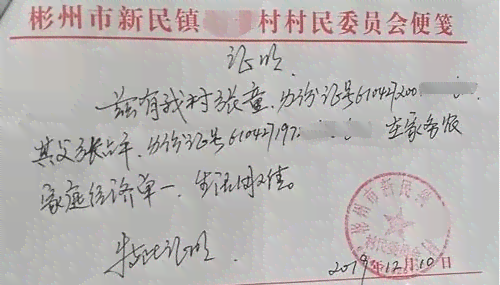 彬州市新民镇 村村民委员会便笺
证明
兹有我村张童,身份证号610427200
其父张占平,身份证号610427197 在家务农
家庭经济单一、生活困难。
特此证明
彬州市新民镇
村民委员会
2019年12月10日